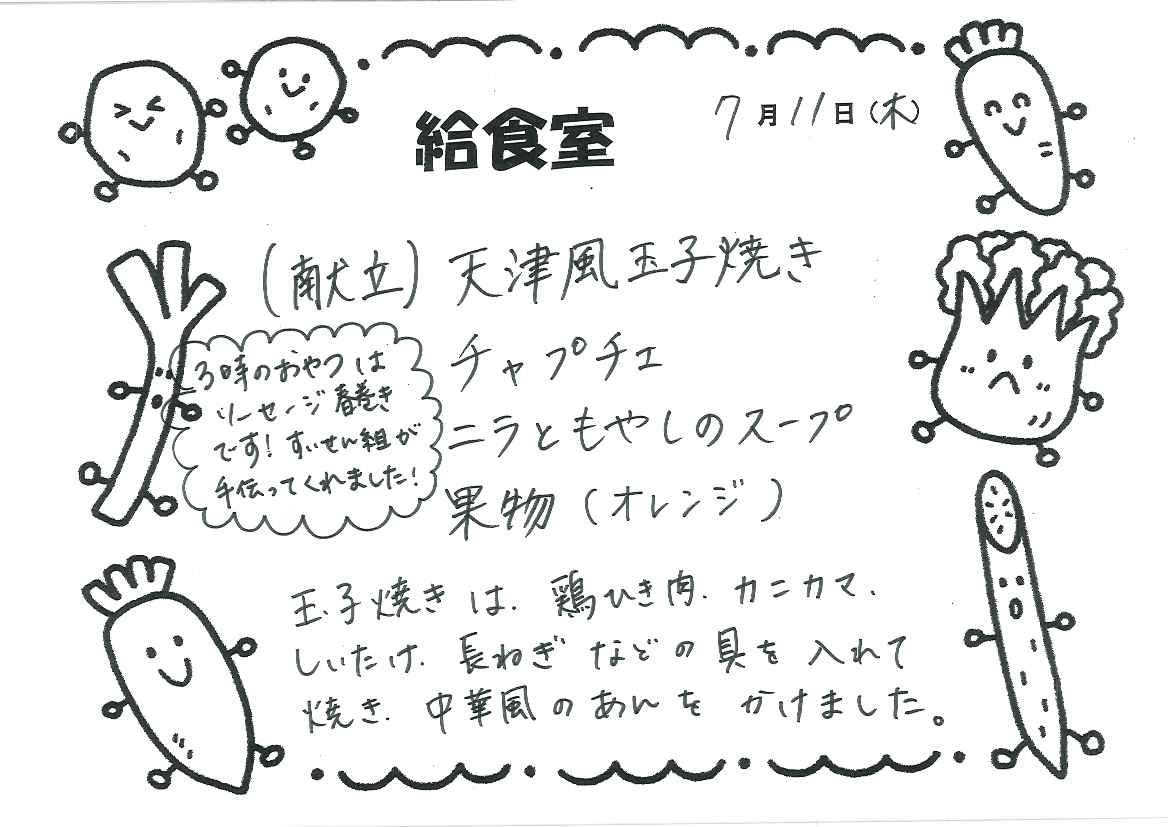 給食室
7月11日(木)
(献立) 天津風玉子焼き
チャプチェ
ニラともやしのスープ
果物(オレンジ)
3時のおやつは
ソーセージ春巻き
です!すいせん組が
手伝ってくれました!
玉子焼きは、鶏ひき肉、カニカマ、
しいたけ、長ねぎなどの具を入れて
焼き、中華風のあんをかけました。